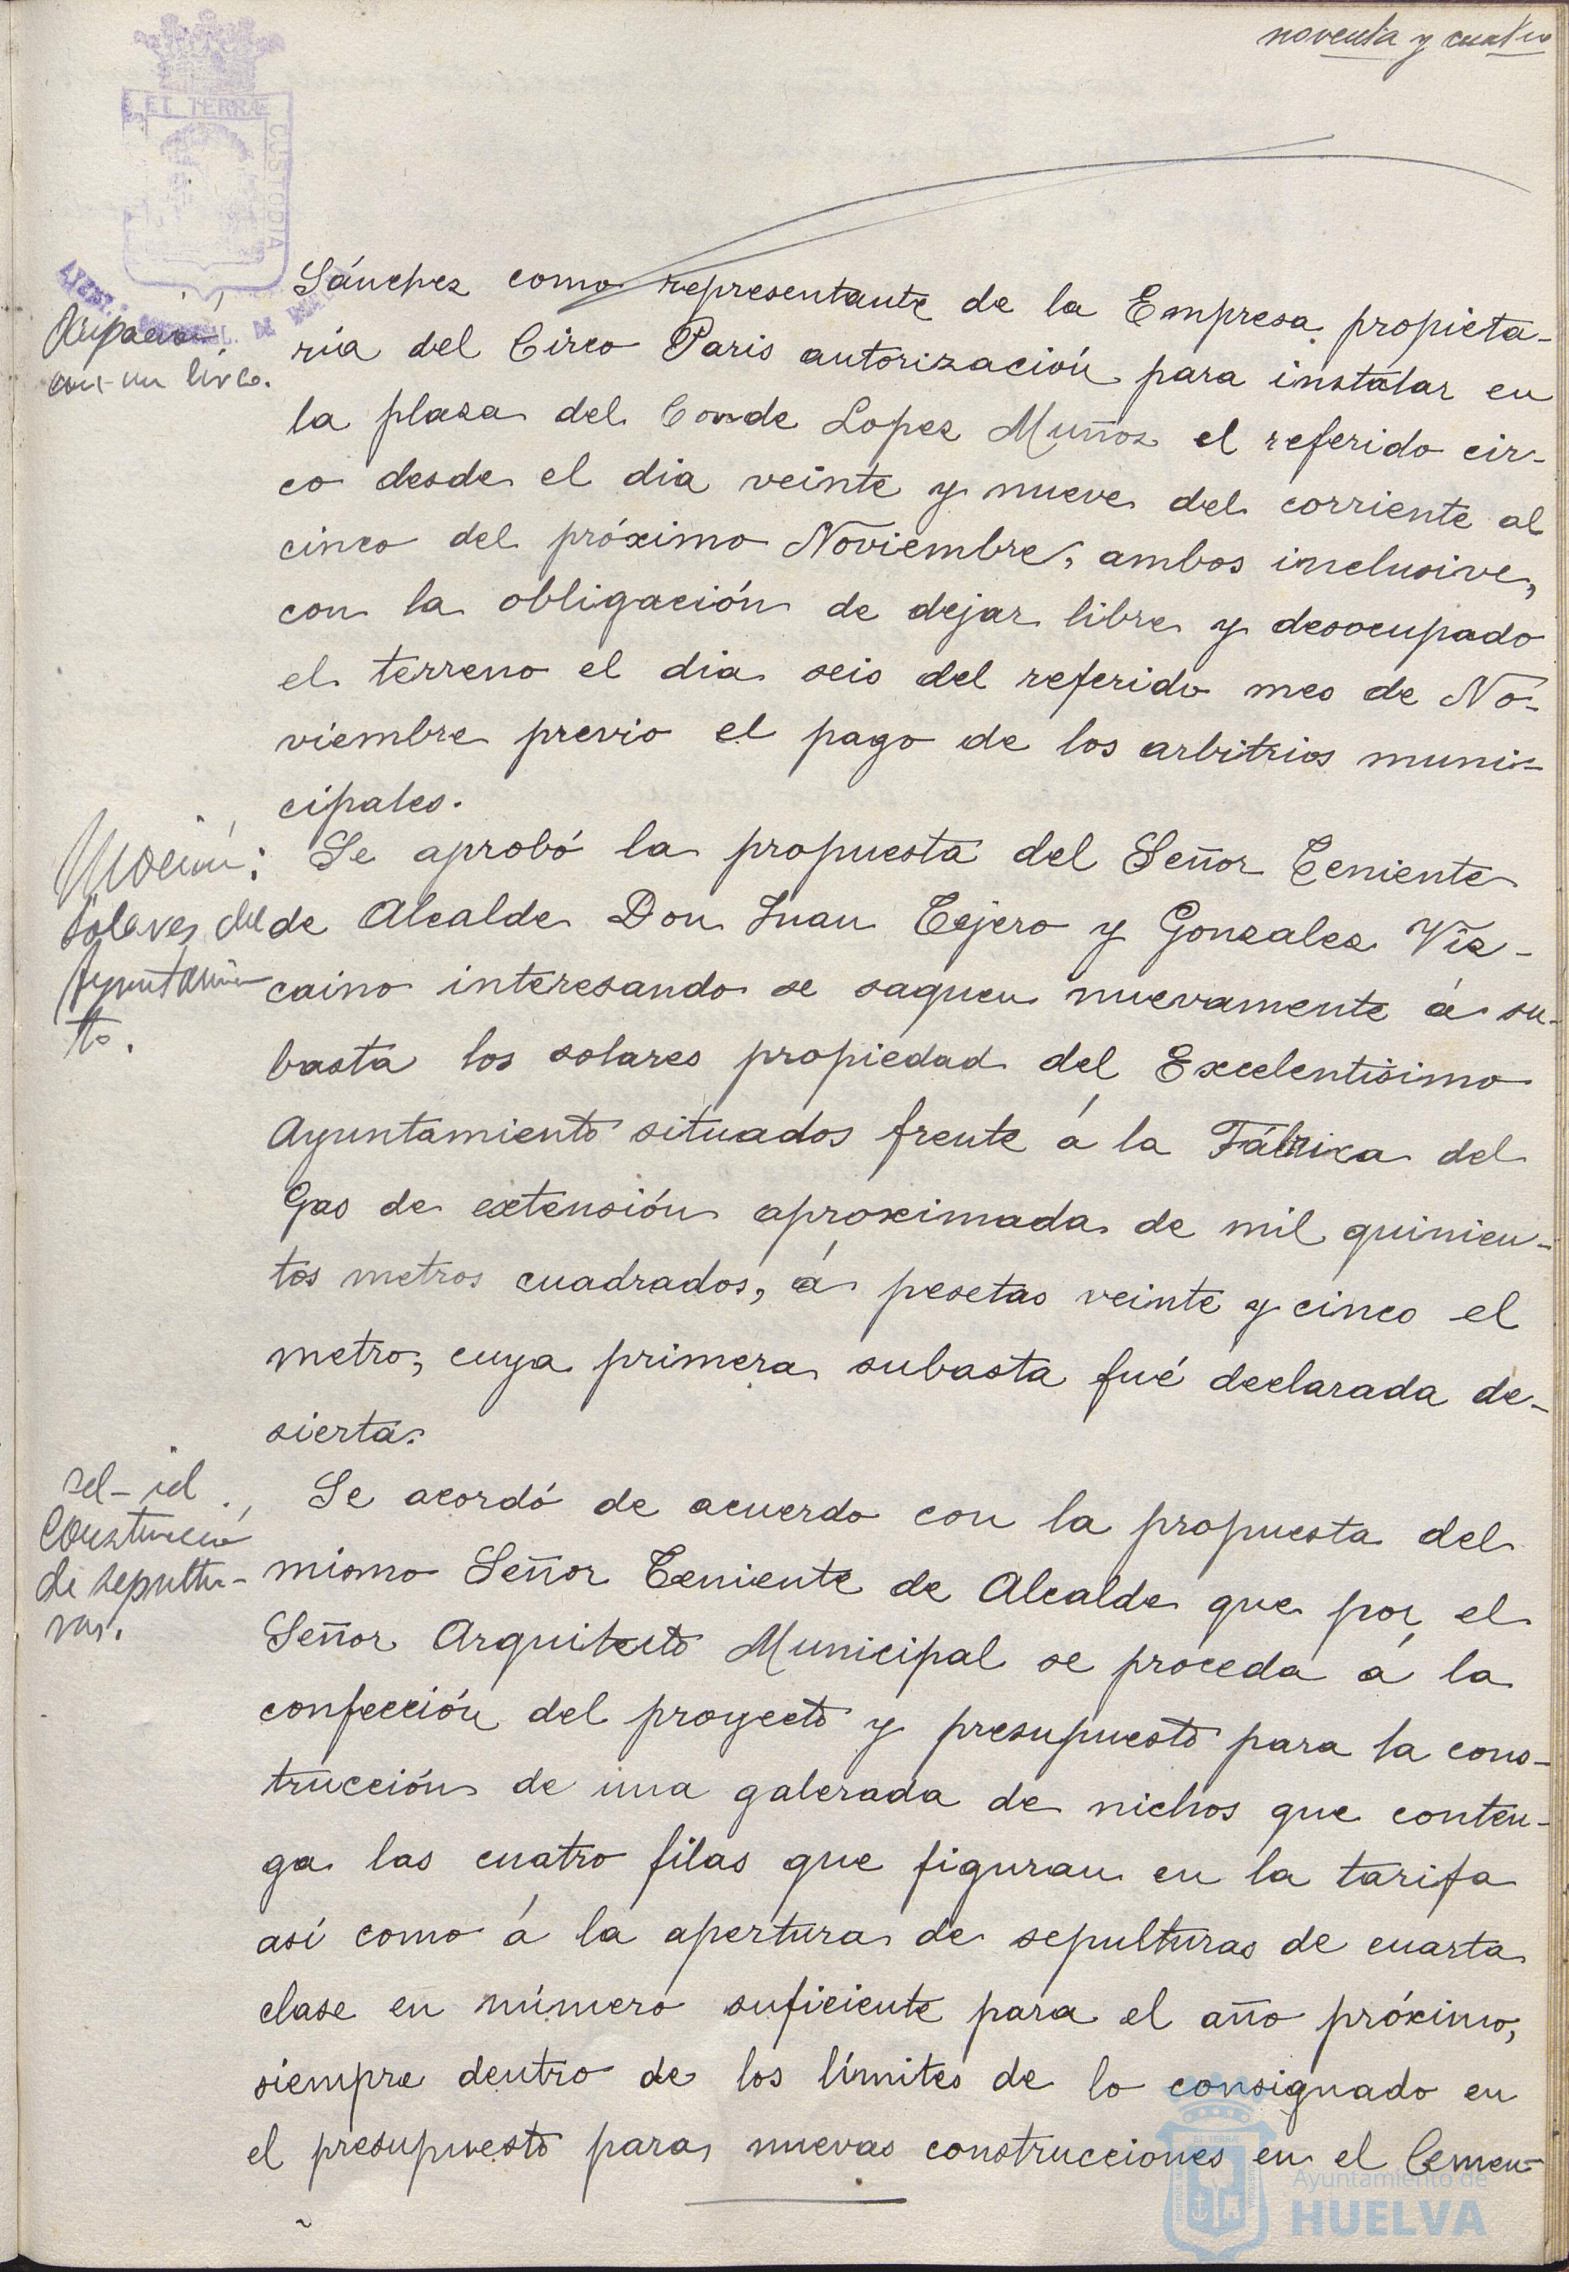 noventa y cuatro
ET TERRÆ
CUSTODIA
Ocupación
con un circo.
Sánchez como representante de la Empresa propieta-
ria del Circo Paris autorización para instalar en
la plaza del Conde Lopez Muñoz el referido cir-
co desde el dia veinte y nueve del corriente al
cinco del próximo Noviembre, ambos inclusive,
con la obligación de dejar libre y desocupado
el terreno el dia seis del referido mes de No-
viembre previo el pago de los arbitrios muni-
cipales.
Moción:
Solares del
Ayuntamien
to.
Se aprobó la propuesta del Señor Teniente
de Alcalde Don Juan Tejero y Gonzalez Viz-
caino interesando se saquen nuevamente á su-
basta los solares propiedad del Excelentisimo
Ayuntamiento situados frente á la Fábrica del
Gas de extensión aproximada de mil quinien-
tos metros cuadrados, á pesetas veinte y cinco el
metro, cuya primera subasta fué declarada de-
sierta.
Construcció
de sepultu-
ras.
Se acordó de acuerdo con la propuesta del
mismo Señor Teniente de Alcalde que por el
Señor Arquitecto Municipal se proceda á la
confección del proyecto y presupuesto para la cons-
trucción de una galerada de nichos que conten-
ga las cuatro filas que figuran en la tarifa
así como á la apertura de sepulturas de cuarta
clase en número suficiente para el año próximo,
siempre dentro de los límites de lo consignado en
el presupuesto para nuevas construcciones en el Cemen-
Ayuntamiento de
HUELVA